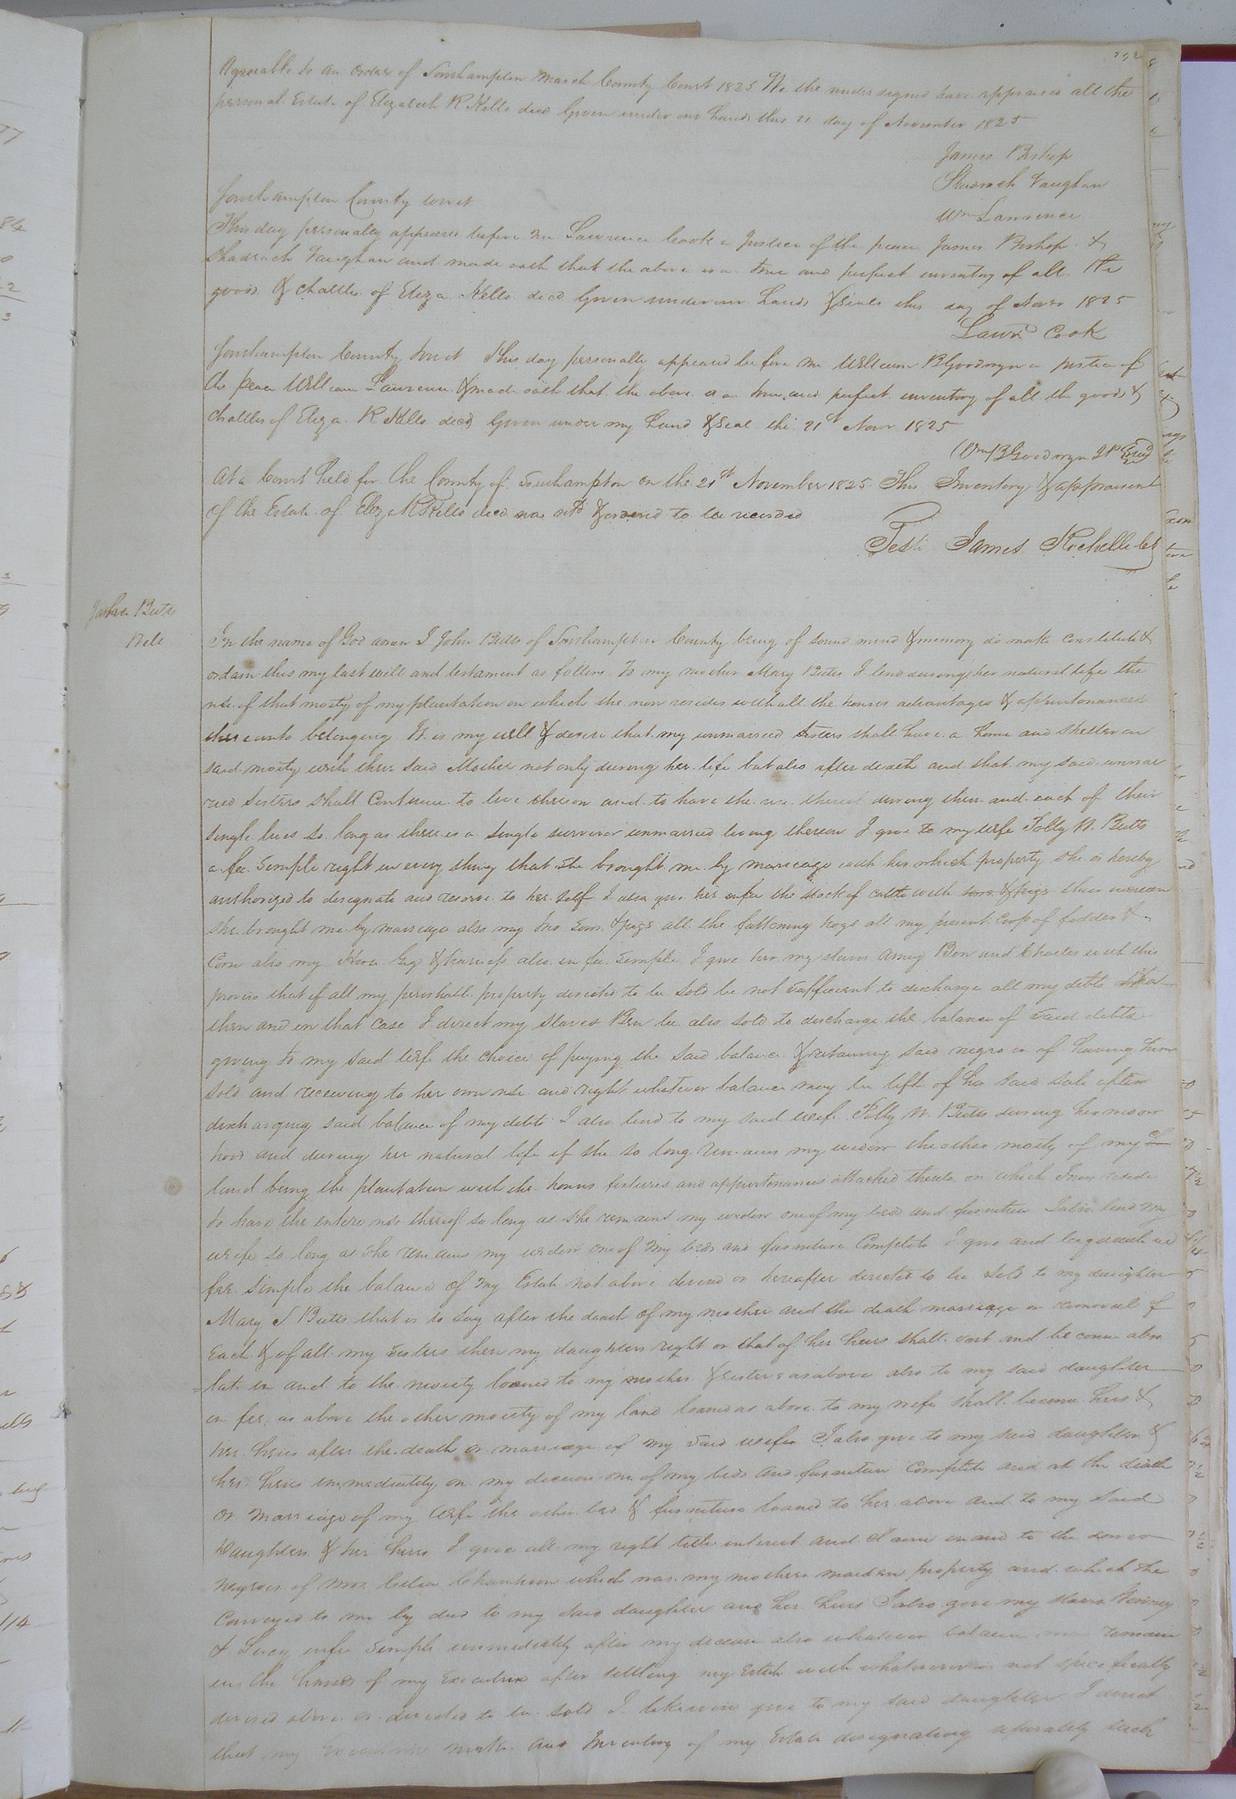 Agreeable to an order of Southampton March County Court 1825 We the undersigned have appraised all the
personal Estate of Elizabeth R Kello decd Given under our hands this 21 day of November 1825
James Bishop
Shadrach Vaughan
Wm Lawrence
Southampton County towit
This day personally appeared before me Lawrence Cook a Justice of the peace James Bishop &
Shadrach Vaughan and made oath that the above is a true and perfect inventory of all the
goods & chattles of Eliza Kello decd Given under my hand & seal this day of Novr 1825
Lawrd Cook
Southampton County towit This day personally appeared before me William B Goodwyn a Justice of
the peace William Lawrence & made oath that the above is a true and perfect inventory of all the goods &
chattles of Eliza R Kello decd Given under my hand & seal the 21st Novr 1825
Wm B Goodwyn
At a Court held for the County of Southampton on the 21st November 1825 This Inventory & appraisment
of the Estate of Eliz R Kello decd was retd & ordered to be recorded
Test James Rochelle
Butts
In the name of God amen I John Butts of Southampton County being of sound mind & memory do make constitute &
ordain this my last will and testament as follows To my mother Mary Butts I lend during her natural life the
use of that moity of my plantation on which she now resides with all the houses advantages & appurtenances
thereunto belonging It is my will & desire that my unmarried sisters shall have a home and shelter on
said moity with their said Mother not only during her life but also after death and that my said unmar
ried sisters shall continue to live thereon and to have the use thereof during their and each of their
single lives so long as there is a single survivor unmarried living thereon I give to my wife Polly W. Butts
a fee simple right in every thing that she brought me by marriage with her which property she is hereby
authorized to designate and reserve to her self I also give her in fee the stock of cattle with sows & pigs
she brought me by marriage also my two sows & pigs all the fattening hogs all my present crop of fodder &
Corn also my Horse Gig & harness also in fee simple I give her my slaves Amey Ben and Charles with this
proviso that if all my perishable property directed to be sold be not sufficient to discharge all my debts
then and in that case I direct my slaves Ben be also sold to discharge the balance of said debts
giving to my said wife the choice of paying the said balance & retaining said negro or of having him
sold and receiving to her own use and right whatever balance may be left of the said sale after
discharging said balance of my debts I also lend to my said wife Polly W. Butts during her widow
hood and during her natural life if she so long remains my widow the other moity of my
land being the plantation with the houses fixtures and appurtenances attached thereto on which I now reside
to have the entire use thereof so long as she remains my widow one of my beds and furniture I also lend my
wife so long as she remains my widow one of my beds and furniture Complete I give and bequeath in
fee simple the balance of my Estate not above devised or hereafter directed to be sold to my daughter
Mary J Butts that is to say after the death of my mother and the death marriage or removal of
each & of all my sisters then my daughters right or that of her heirs shall vest and become abso
lute in and to the moiety loaned to my mother & sisters as above also to my said daughter
in fee as above the other moiety of my land loaned as above to my wife shall become hers &
her heirs after the death or marriage of my said wife I also give to my said daughter &
her heirs immediately on my decease one of my beds and furniture Complete and at the death
or marriage of my wife the other bed & furniture loaned to her above and to my said
Daughter & her heirs I give all my right title interest and claim in and to the
negroes of which was my mothers maiden property and which she
conveyed to me by deed to my said daughter and her heirs I also give my slaves
& Lucy in fee simple immediately after my decease also whatever balance may remain
in the hands of my Executrix after settling my Estate with whatsoever is not specifically
devised above or directed to be sold I likewise give to my said daughter I direct
that my make and Inventory of my Estate designating seperately such